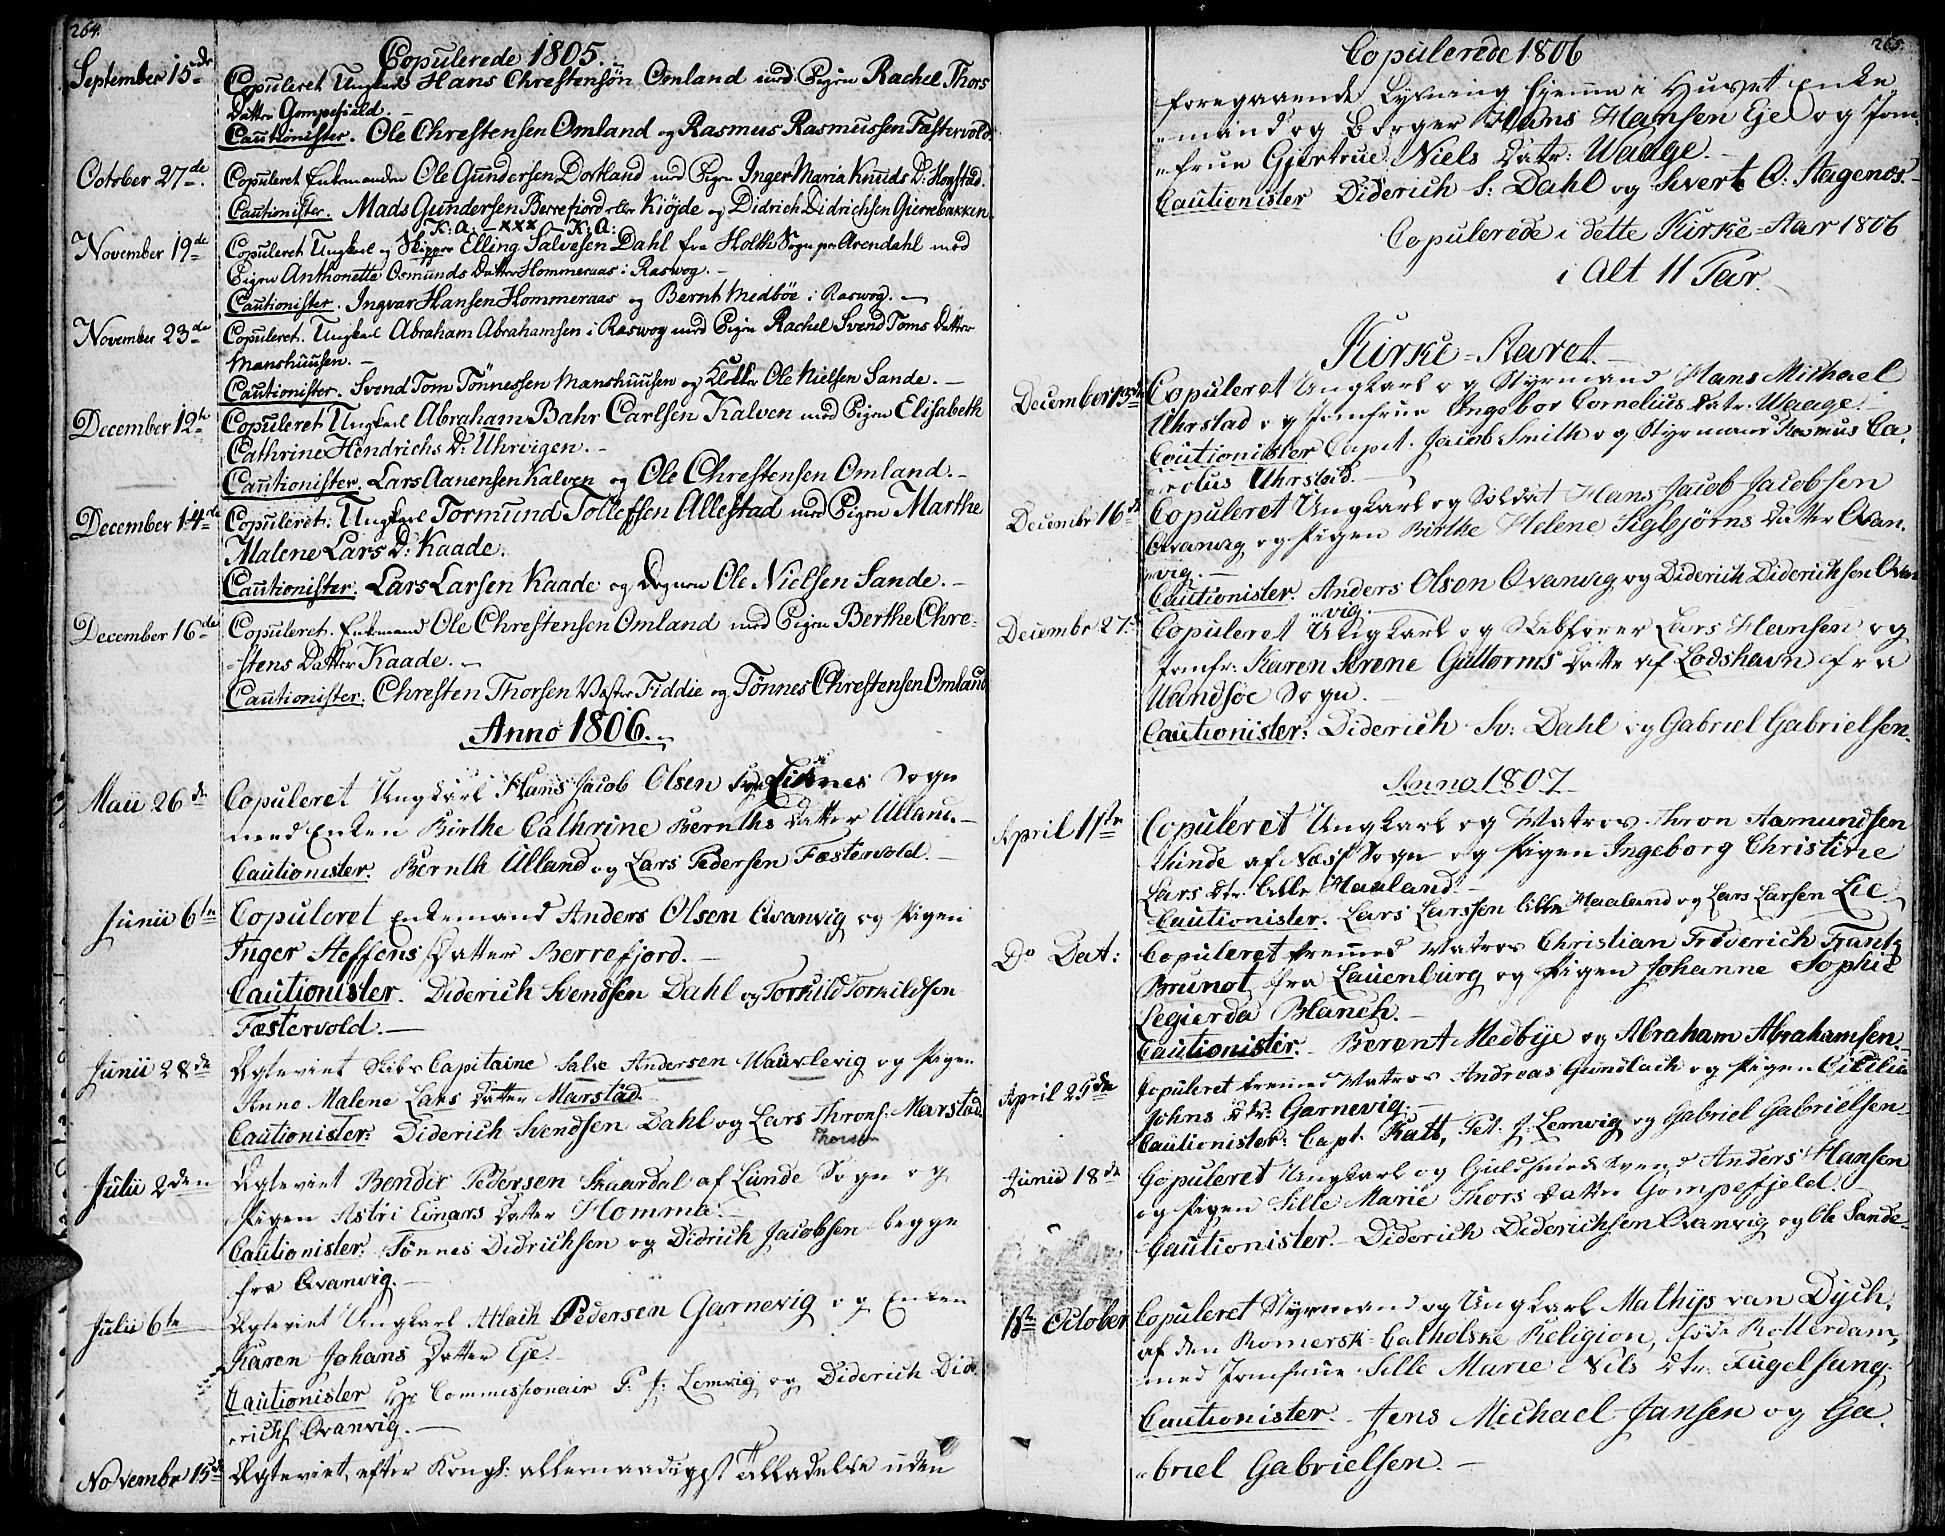 264.
Copulerede 1805.
September 15de Copuleret Ungkarl Hans Chrestensøn Omland med Pigen Rachel Thors
Datter Gompefield.
Cautionister. Ole Chrestensen Omland og Rasmus Rasmussen Fæstervold
October 27de. Copuleret Enkemanden Ole Gundersen Dortland med Pigen Inger Maria Knuds D: Hogstad.
Cautionister. Mads Gundersen Berrefiord eller Kiøjde og Didrich Didrichsen Gierrebakken.
K: A: – xxx – K: A:
November 19de Copuleret Ungkarl og Skipper Elling Salvesen Dahl fra Holth Sogn per Arendahl med
Pigen Anthonette Osmunds Datter Hommeraas i Raswog.
Cautionister. Ingvar Hansen Hommeraas og Bernt Medbøe i Raswog.
November 23de Copuleret. Ungkarl Abraham Abrahamsen i Raswog med Pigen Rachel Svend Toms Datter
Manshuusen.
Cautionister. Svend Tom Tönnessen Manshuusen og Klokker Ole Nielsen Sande.
December 12te Copuleret Ungkarl Abraham Bahr Carlsen Kalven med Pigen Elisabeth
Cathrine Hendrichs D: Uhrvigen.
Cautionister. Lars Aanensen Kalven og Ole Chrestensen Omland.
December 14de Copuleret. Ungkarl Tormund Tolleffsen Allestad med Pigen Marthe
Malene Lars D: Kaade.
Cautionister. Lars Larsen Kaade og Degnen Ole Nielsen Sande.
December 16de Copuleret. Enkemand Ole Chrestensen Omland med Pigen Berthe Chre-
-stens Datter Kaade.
Cautionister: Chresten Thorsen Vester Fiddie og Tönnes Chrestensen Omland
Anno 1806.
Maii 26de Copuleret Ungkarl Hans Jacob Olsen fra Sogn
med Enken Birthe Cathrine Bernths Datter Ulland.
Cautionister. Bernth Ulland og Lars Pedersen Fæstervold.
Junii 6te Copuleret Enkemand Anders Olsen Qvanvig og Pigen
Inger Steffens Datter Berrefjord.
Cautionister. Diderich Svendsen Dahl og Torkild Torkildsen
Fæstervold.
Junii 28de Ægteviet Skibs Capitaine Salve Andersen Waurlevig og Pigen
Anne Malene Lars Datter Marstad.
Cautionister: Diderich Svendsen Dahl og Lars Throns: Marstad.
Thorsen
Julii 2den Ægteviet Bendix Pedersen Skaardal af Lunde Sogn og
Pigen Astri Einars Datter Homme.
Cautionister: Tönnes Didrichsen og Didrich Jacobsen begge
fra Qvanvig.
Julii 6te Ægteviet Ungkarl Atlach Pedersen Garnevig og Enken
Karen Johans Datter Eje.
Cautionister Hr Commissionair P: J: Lemvig og Diderich Dide-
-richs Qvanvig.
Novembr 15de Ægteviet, efter Kongl: allernaadigst Tilladelse uden
265.
Copulerede 1806
foregaaende Lysning hjemme i Huset Enke-
-mand og Borger Hans Hansen Eje og Jom-
-frue Gjertrue Niels Datr: Waage.
Cautionister Diderich S: Dahl og Sivert O: Aagenæs.
Copulerede i dette Kirke-Aar 1806
i Alt 11 Par.
Kirke-Aaret.
December 13de Copuleret Ungkarl og Styrmand Hans Michael
Uhrstad og Jomfrue Ingebor Cornelius Datr: Waage.
Cautionister Capt. Jacob Smith og Styrmand Rasmus Ca-
-rolus Uhrstad.
Decembr 16de Copuleret Ungkarl og Soldat Hans Jacob Jacobsen
Qvanvig og Pigen Birthe Helene Sigbjørns Datter Qvan-
-vig.
Cautionister. Anders Olsen Qvanvig og Diderich Diderichsen Qvan-
-vig.
Decembr 27de Copuleret Ungkarl og Skibsfører Lars Hansen og
Jomfr: Karen Serene Guttorms Datte af Lodshavn fra
Wandsøe Sogn.
Cautionister: Diderich Sv: Dahl og Gabriel Gabrielsen.
Anno 1807
April 1ste Copuleret Ungkarl og Matros Thron Aamundsen
Hinde af Næss Sogn og Pigen Ingeborg Christine
Lars Dtr. Lille Haaland.
Cautionister. Lars Larssen lille Haaland og Lars Larsen Lie
Do Dat: Copuleret fremmed Matros Christian Friderich Frantz
Brunot fra Lauenburg og Pigen Johanne Sophie
Legierda Blanch.
Cautionister. Berent Medbye og Abraham Abrahamsen.
April 29de Copuleret fremmed Matros Andreas Gundlach og Pigen Cicilia
Johns Dtr: Garnevig.
Cautionister: Capt. Katt, Pet. J. Lemvig og Gabriel Gabrielsen
Junii 18de Copuleret Ungkarl og Guldsmed Svend Anders Hansen
og Pigen Sille Marie Thors Datter Gompefjeld.
Cautionister. Diderich Diderichsen Qvanvig og Ole Sande.
18de October Copuleret Styrmand og Ungkarl Mathijs van Dijch,
af den Romersk-Catholske Religion, fød i Rotterdam,
med Jomfrue Sille Marie Nils Dtr. Fugelsang.
Cautionister. Jens Michael Jansen og Ga-
-briel Gabrielsen.